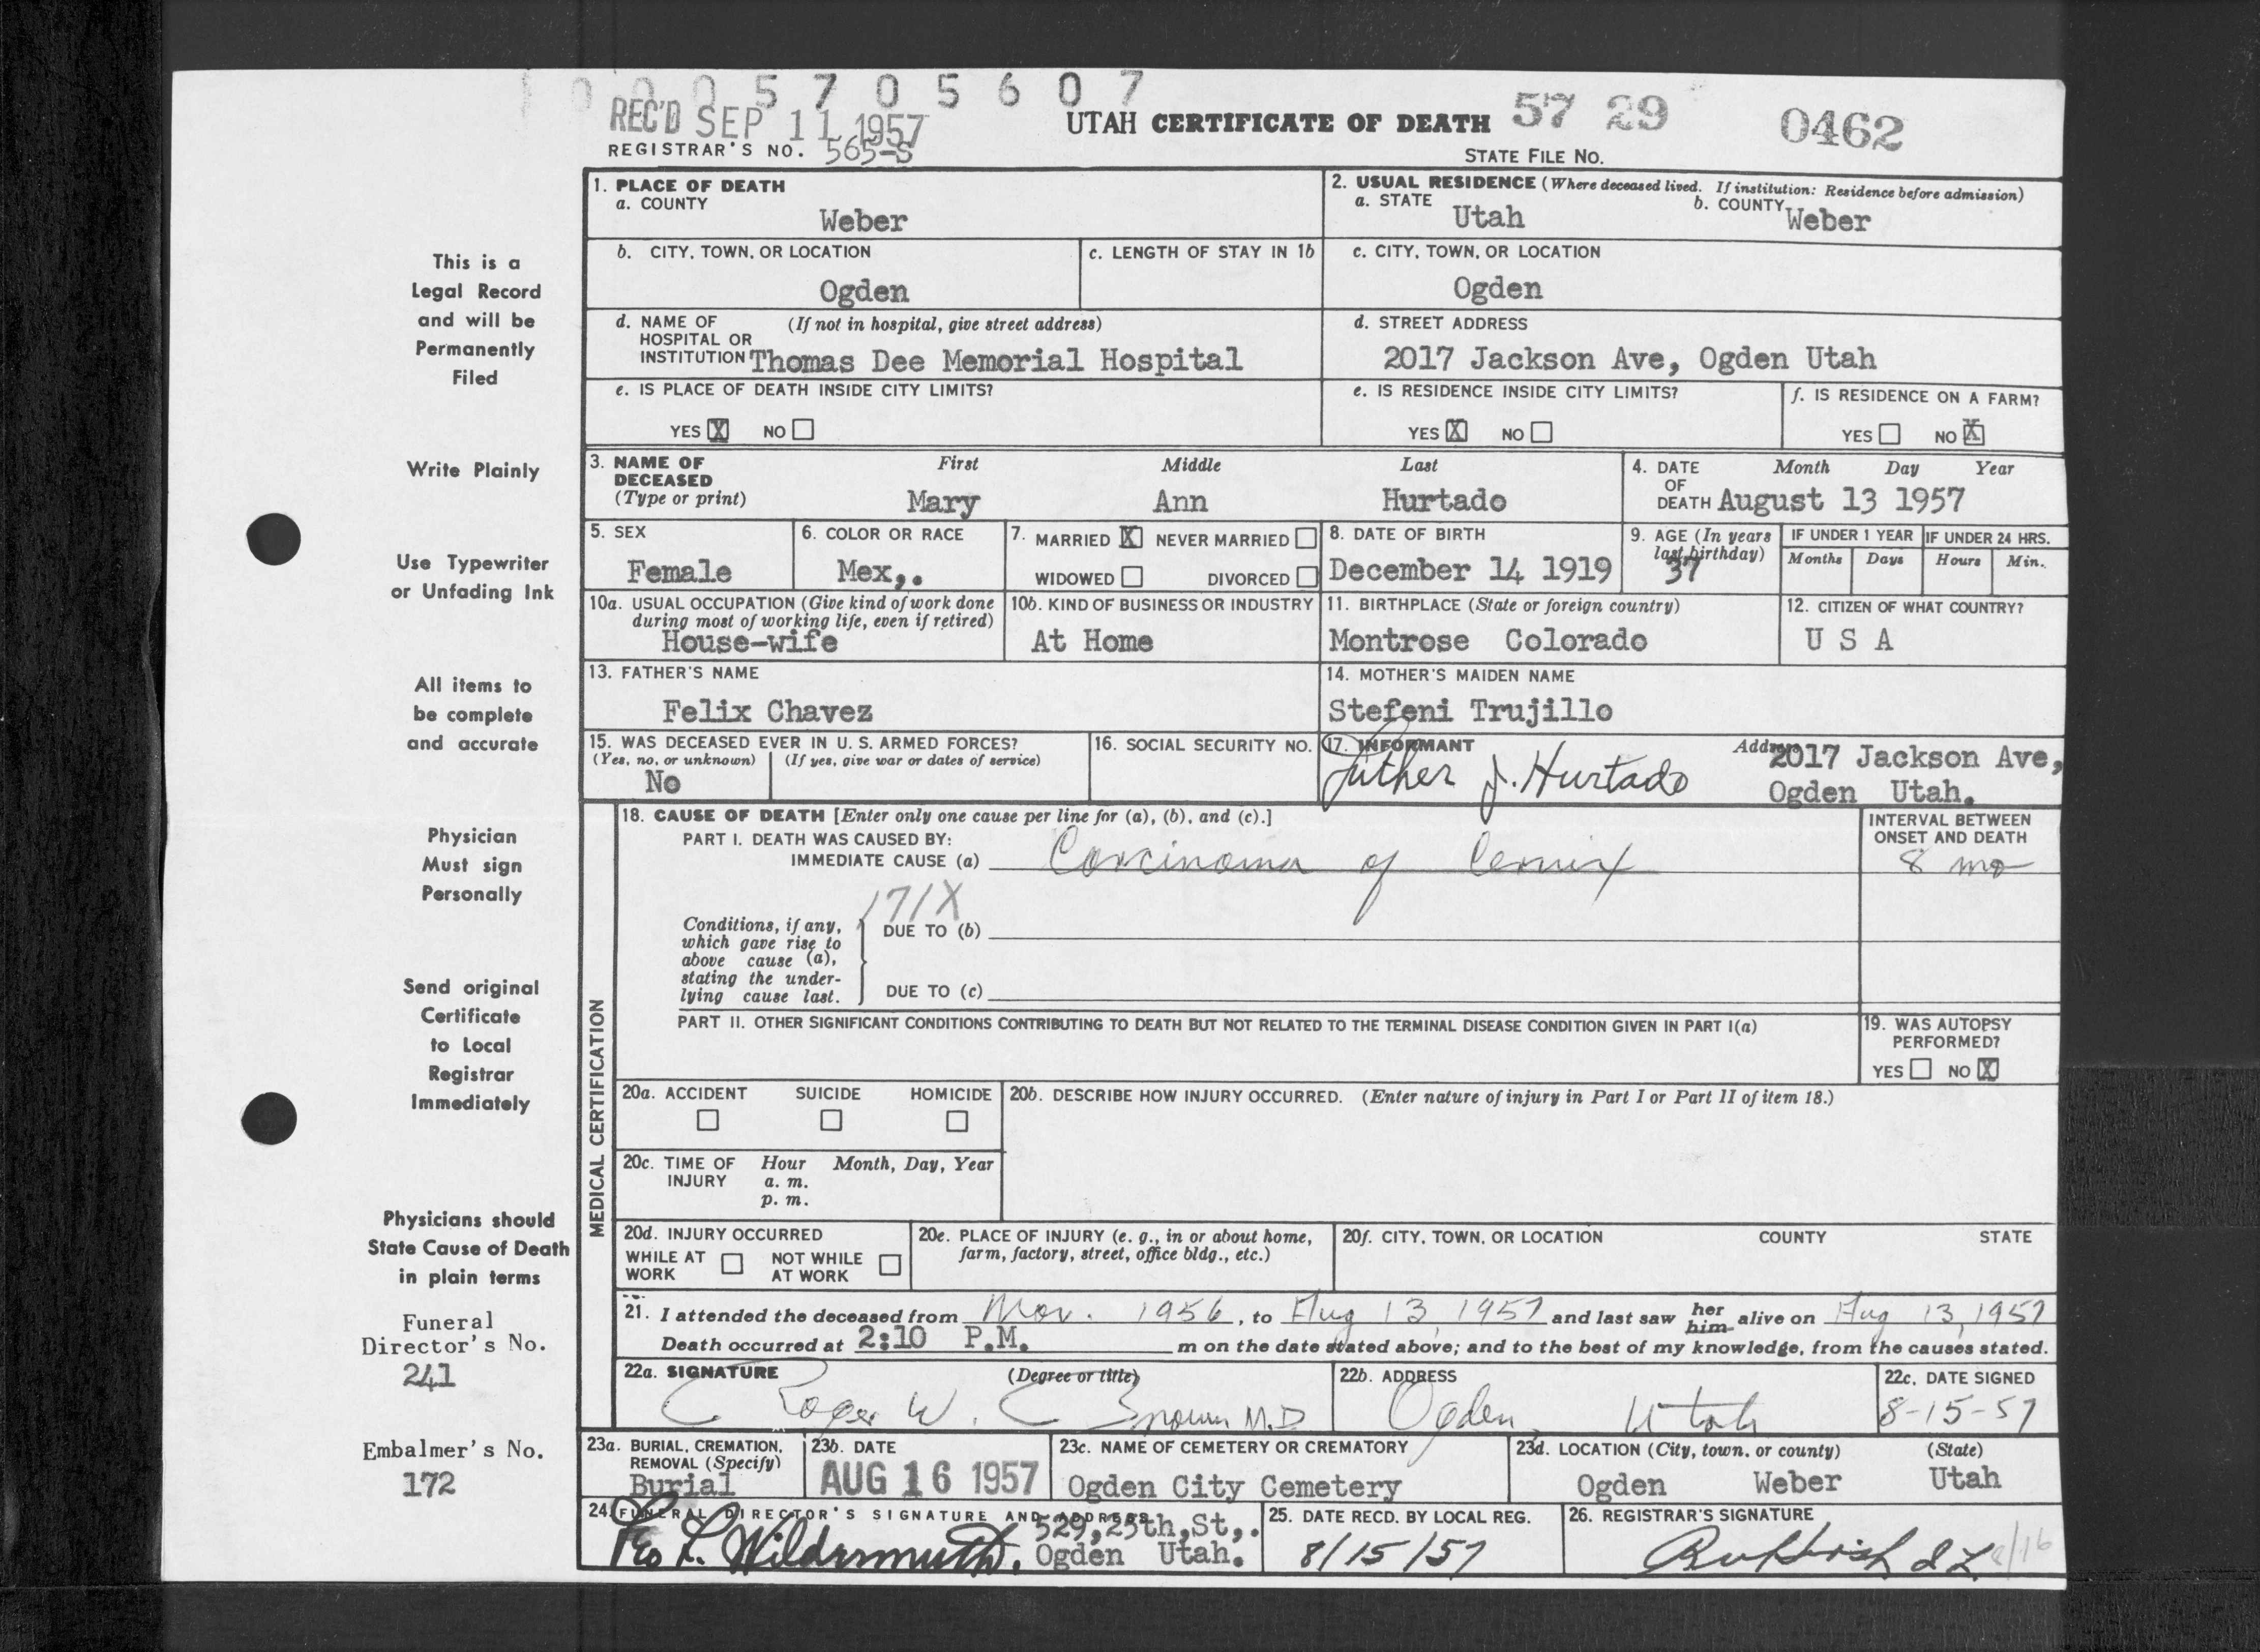 0005705607
REC'D SEP 11 1957
UTAH CERTIFICATE OF DEATH 57 29 0462
REGISTRAR'S NO. 565-S
STATE FILE NO.
This is a
Legal Record
and will be
Permanently
Filed
Write Plainly
Use Typewriter
or Unfading Ink
All items to
be complete
and accurate
Physician
Must sign
Personally
Send original
Certificate
to Local
Registrar
Immediately
Physicians should
State Cause of Death
in plain terms
Funeral
Director's No.
241
Embalmer's No.
172
1. PLACE OF DEATH
a. COUNTY
Weber
2. USUAL RESIDENCE (Where deceased lived. If institution: Residence before admission)
a. STATE Utah b. COUNTY Weber
b. CITY, TOWN, OR LOCATION
Ogden
c. LENGTH OF STAY IN 1b
c. CITY, TOWN, OR LOCATION
Ogden
d. NAME OF (If not in hospital, give street address)
HOSPITAL OR
INSTITUTION Thomas Dee Memorial Hospital
d. STREET ADDRESS
2017 Jackson Ave, Ogden Utah
e. IS PLACE OF DEATH INSIDE CITY LIMITS?
YES X NO
e. IS RESIDENCE INSIDE CITY LIMITS?
YES X NO
f. IS RESIDENCE ON A FARM?
YES NO X
3. NAME OF First Middle Last
DECEASED
(Type or print) Mary Ann Hurtado
4. DATE Month Day Year
OF
DEATH August 13 1957
5. SEX
Female
6. COLOR OR RACE
Mex,.
7. MARRIED X NEVER MARRIED
WIDOWED DIVORCED
8. DATE OF BIRTH
December 14 1919
9. AGE (In years
last birthday)
37
IF UNDER 1 YEAR IF UNDER 24 HRS.
Months Days Hours Min.
10a. USUAL OCCUPATION (Give kind of work done
during most of working life, even if retired)
House-wife
10b. KIND OF BUSINESS OR INDUSTRY
At Home
11. BIRTHPLACE (State or foreign country)
Montrose Colorado
12. CITIZEN OF WHAT COUNTRY?
U S A
13. FATHER'S NAME
Felix Chavez
14. MOTHER'S MAIDEN NAME
Stefeni Trujillo
15. WAS DECEASED EVER IN U. S. ARMED FORCES?
(Yes, no, or unknown) (If yes, give war or dates of service)
No
16. SOCIAL SECURITY NO.
17. INFORMANT Address 2017 Jackson Ave,
Luther J. Hurtado Ogden Utah.
MEDICAL CERTIFICATION
18. CAUSE OF DEATH [Enter only one cause per line for (a), (b), and (c).]
PART I. DEATH WAS CAUSED BY:
IMMEDIATE CAUSE (a) Carcinoma of Cervix
INTERVAL BETWEEN
ONSET AND DEATH
8 mo
171X
Conditions, if any,
which gave rise to
above cause (a),
stating the under-
lying cause last.
DUE TO (b)
DUE TO (c)
PART II. OTHER SIGNIFICANT CONDITIONS CONTRIBUTING TO DEATH BUT NOT RELATED TO THE TERMINAL DISEASE CONDITION GIVEN IN PART I(a)
19. WAS AUTOPSY
PERFORMED?
YES NO X
20a. ACCIDENT SUICIDE HOMICIDE
20b. DESCRIBE HOW INJURY OCCURRED. (Enter nature of injury in Part I or Part II of item 18.)
20c. TIME OF Hour Month, Day, Year
INJURY a. m.
p. m.
20d. INJURY OCCURRED
WHILE AT NOT WHILE
WORK AT WORK
20e. PLACE OF INJURY (e. g., in or about home,
farm, factory, street, office bldg., etc.)
20f. CITY, TOWN, OR LOCATION COUNTY STATE
21. I attended the deceased from Nov. 1956, to Aug 13, 1957 and last saw her him alive on Aug 13, 1957
Death occurred at 2:10 P.M. m on the date stated above; and to the best of my knowledge, from the causes stated.
22a. SIGNATURE (Degree or title)
Roger W. Brown M.D
22b. ADDRESS
Ogden Utah
22c. DATE SIGNED
8-15-57
23a. BURIAL, CREMATION,
REMOVAL (Specify)
Burial
23b. DATE
AUG 16 1957
23c. NAME OF CEMETERY OR CREMATORY
Ogden City Cemetery
23d. LOCATION (City, town, or county) (State)
Ogden Weber Utah
24. FUNERAL DIRECTOR'S SIGNATURE AND ADDRESS
529,25th,St,.
Geo L. Wildermuth. Ogden Utah.
25. DATE RECD. BY LOCAL REG.
8/15/57
26. REGISTRAR'S SIGNATURE
8/16